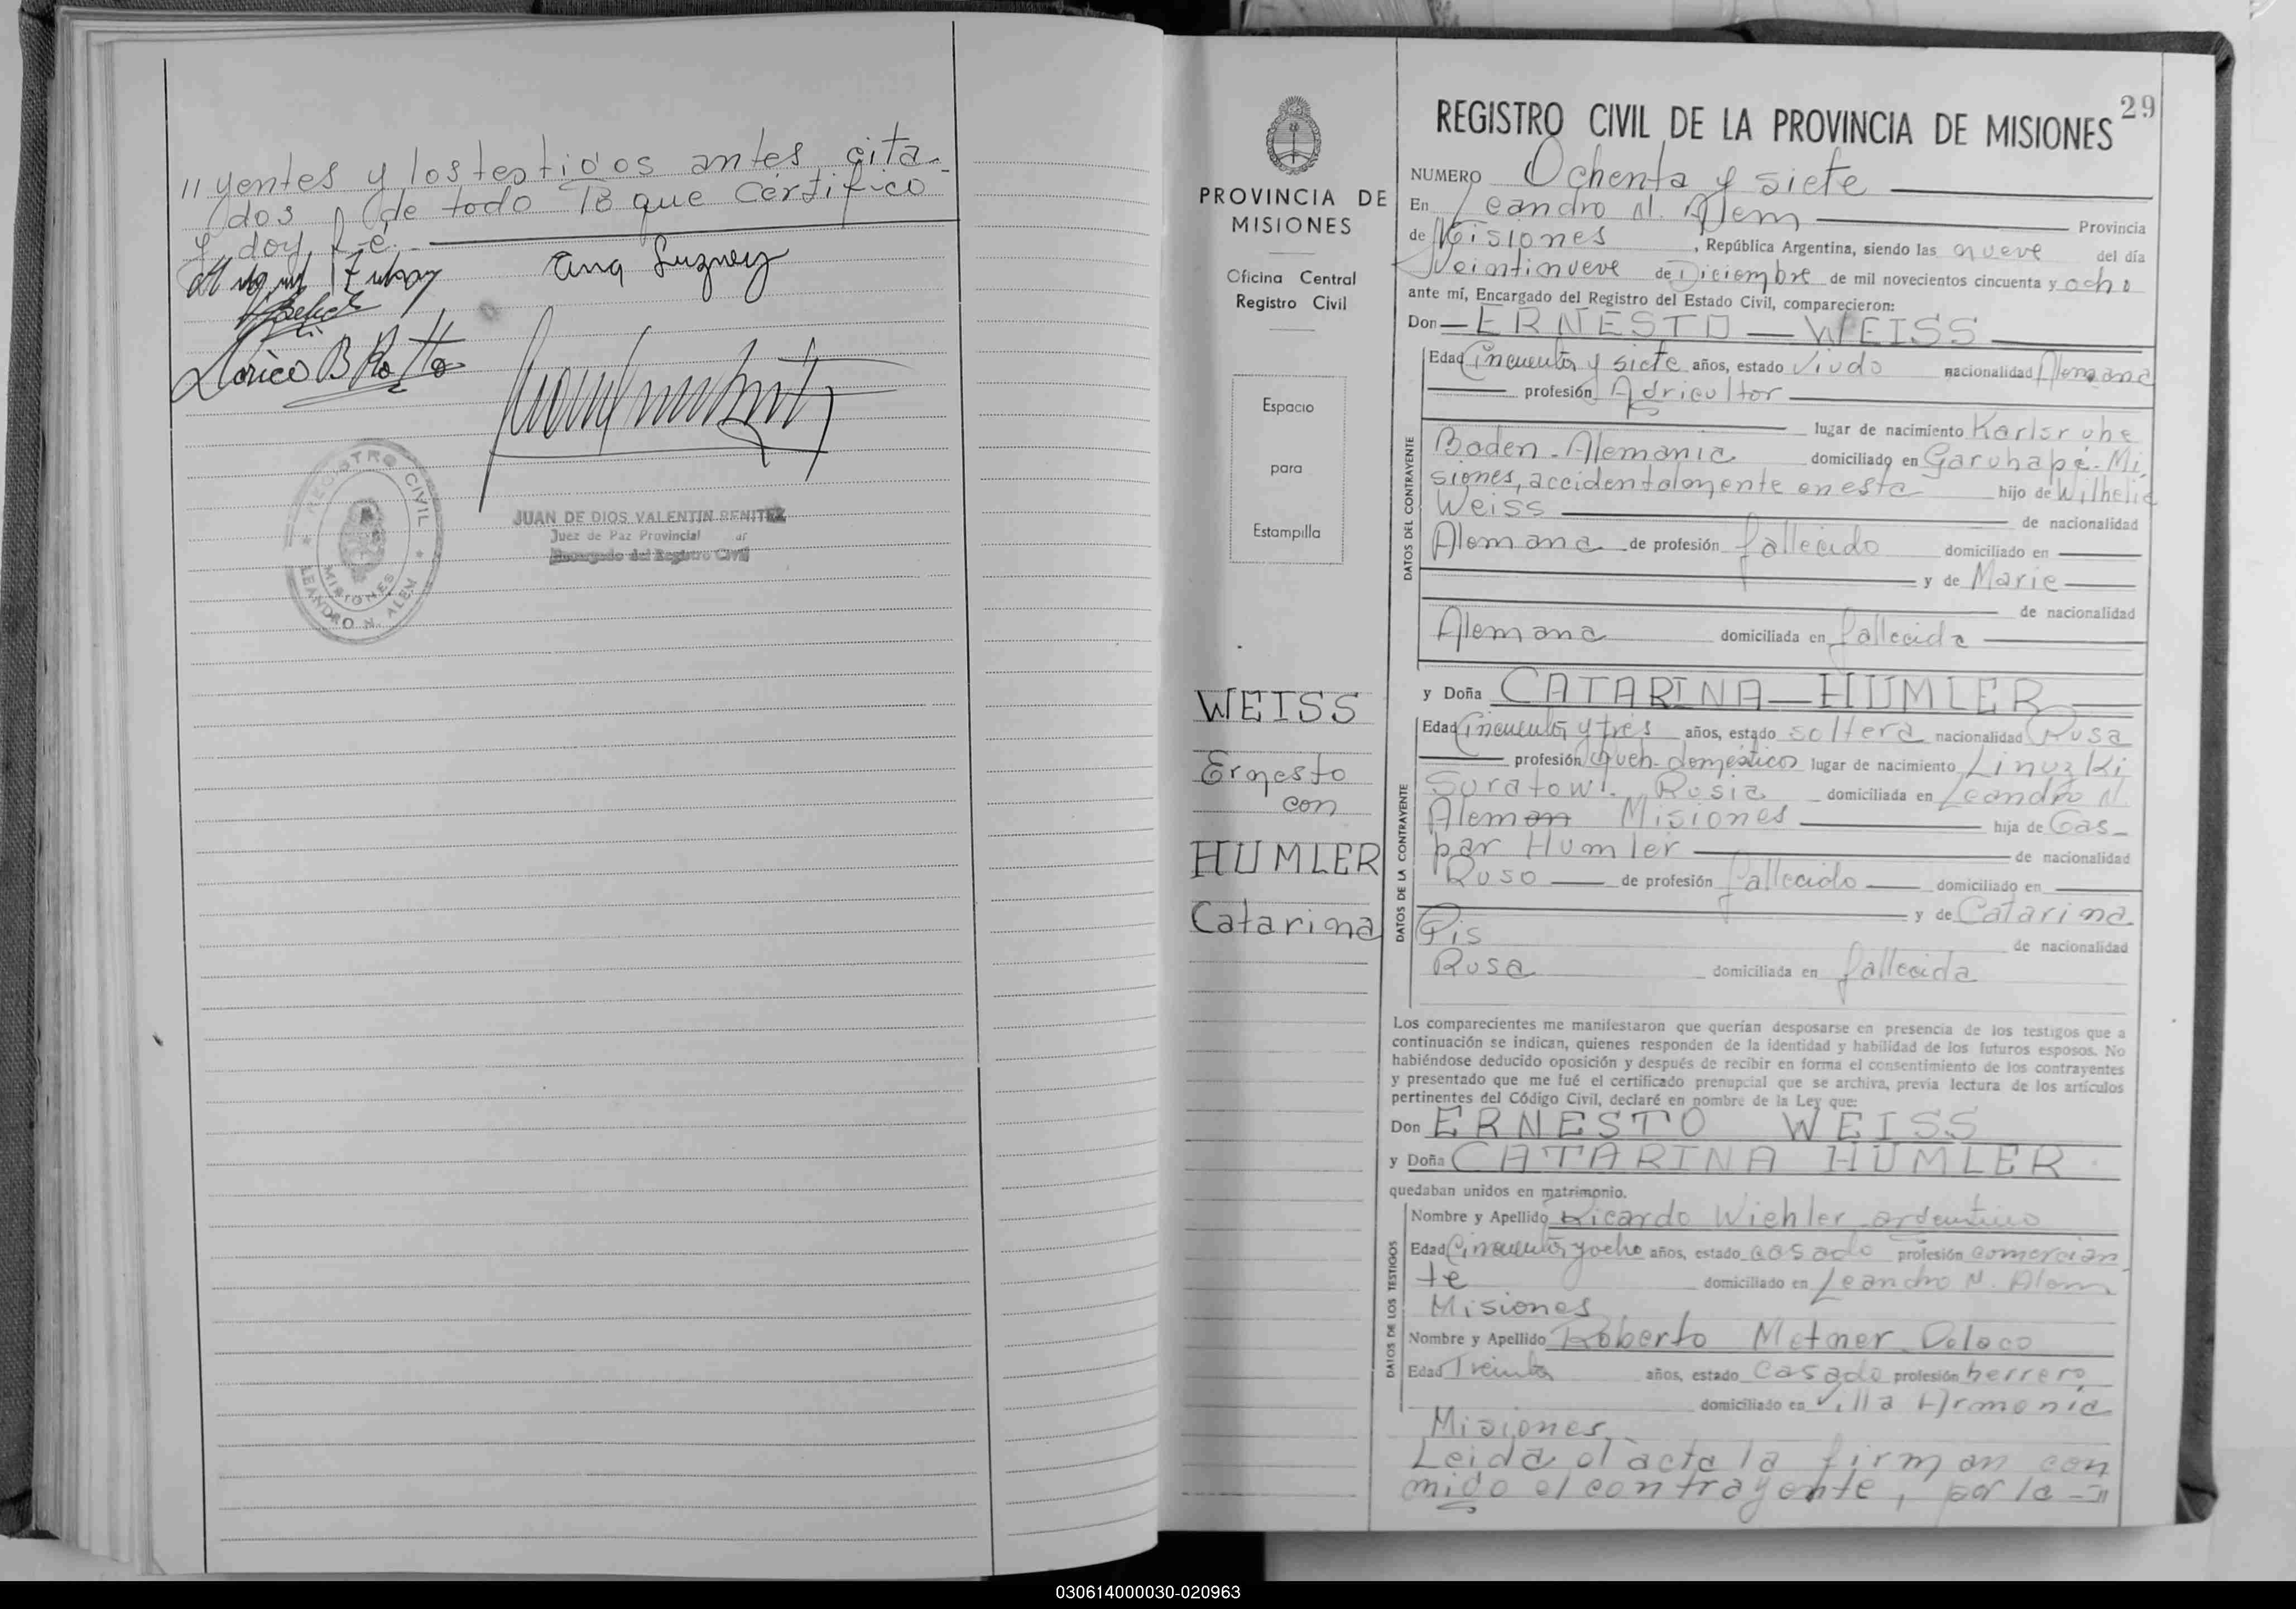 // yentes y los testigos antes cita-
dos, de todo lo que certifico
y doy fé.
Lorico B Rotto
REGISTRO CIVIL
MISIONES
LEANDRO N. ALEM
JUAN DE DIOS VALENTIN BENITEZ
Juez de Paz Provincial
Encargado del Registro Civil
PROVINCIA DE
MISIONES
Oficina Central
Registro Civil
Espacio
para
Estampilla
WEISS
Ernesto
con
HUMLER
Catarina
29
REGISTRO CIVIL DE LA PROVINCIA DE MISIONES
NUMERO Ochenta y siete
En Leandro N. Alem Provincia
de Misiones, República Argentina, siendo las nueve del día
Veintinueve de Diciembre de mil novecientos cincuenta y ocho
ante mí, Encargado del Registro del Estado Civil, comparecieron:
Don ERNESTO WEISS
DATOS DEL CONTRAYENTE
Edad Cincuenta y siete años, estado Viudo nacionalidad Alemana
profesión Agricultor
lugar de nacimiento Karlsruhe
Baden-Alemania domiciliado en Garuhapé-Mi
siones, accidentalmente en esta hijo de
Weiss de nacionalidad
Alemana de profesión fallecido domiciliado en
y de Marie
de nacionalidad
Alemana domiciliada en fallecida
y Doña CATARINA HUMLER
DATOS DE LA CONTRAYENTE
Edad Cincuenta y tres años, estado soltera nacionalidad Rusa
profesión Queh. domésticos lugar de nacimiento Linuzki
Suratowi. Rusia domiciliada en Leandro N.
Alem Misiones hija de Gas-
par Humler de nacionalidad
Ruso de profesión fallecido domiciliado en
y de Catarina
Pis de nacionalidad
Rusa domiciliada en fallecida
Los comparecientes me manifestaron que querían desposarse en presencia de los testigos que a
continuación se indican, quienes responden de la identidad y habilidad de los futuros esposos. No
habiéndose deducido oposición y después de recibir en forma el consentimiento de los contrayentes
y presentado que me fué el certificado prenupcial que se archiva, previa lectura de los artículos
pertinentes del Código Civil, declaré en nombre de la Ley que:
Don ERNESTO WEISS
y Doña CATARINA HUMLER
quedaban unidos en matrimonio.
DATOS DE LOS TESTIGOS
Nombre y Apellido Ricardo Wiehler argentino
Edad Cincuenta y ocho años, estado casado profesión comercian
te domiciliado en Leandro N. Alem
Misiones
Nombre y Apellido Roberto Metner Polaco
Edad Treinta años, estado Casado profesión herrero
domiciliado en Villa Armonía
Misiones.
Leída el acta la firman con
migo el contrayente, por la -//
030614000030-020963